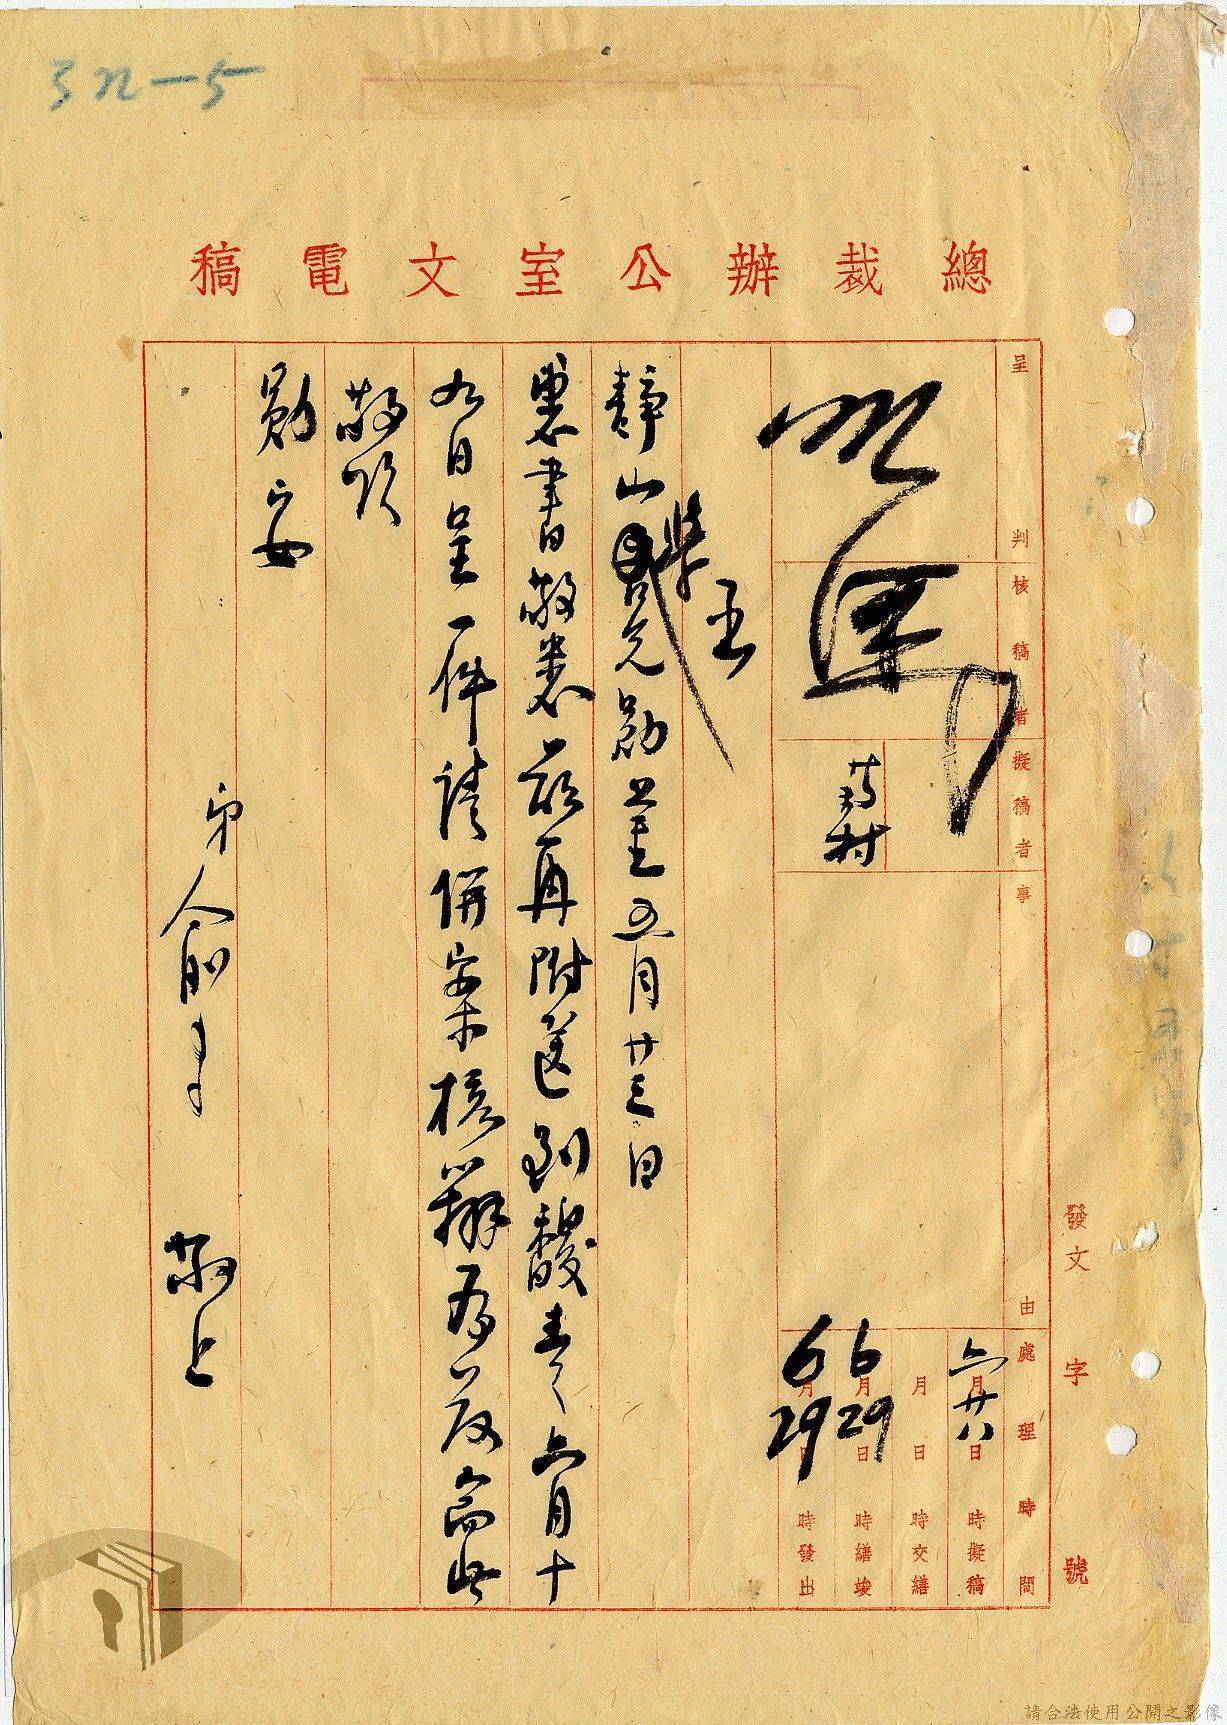 3 n-5
總裁辦公室文電稿
發文 字 號
呈判
核稿者
擬稿者
事由
處理時間
六月廿八日 時擬稿
月 日 時交繕
6月29日 時繕竣
6月29日 時發出
靜山學兄勛鑒五月廿三日
惠書敬悉茲再附送劉馥 六月十
九日呈一件請併案核辦為荷耑此
敬頌
勛安
弟俞 敬上
請合法使用公開之影像